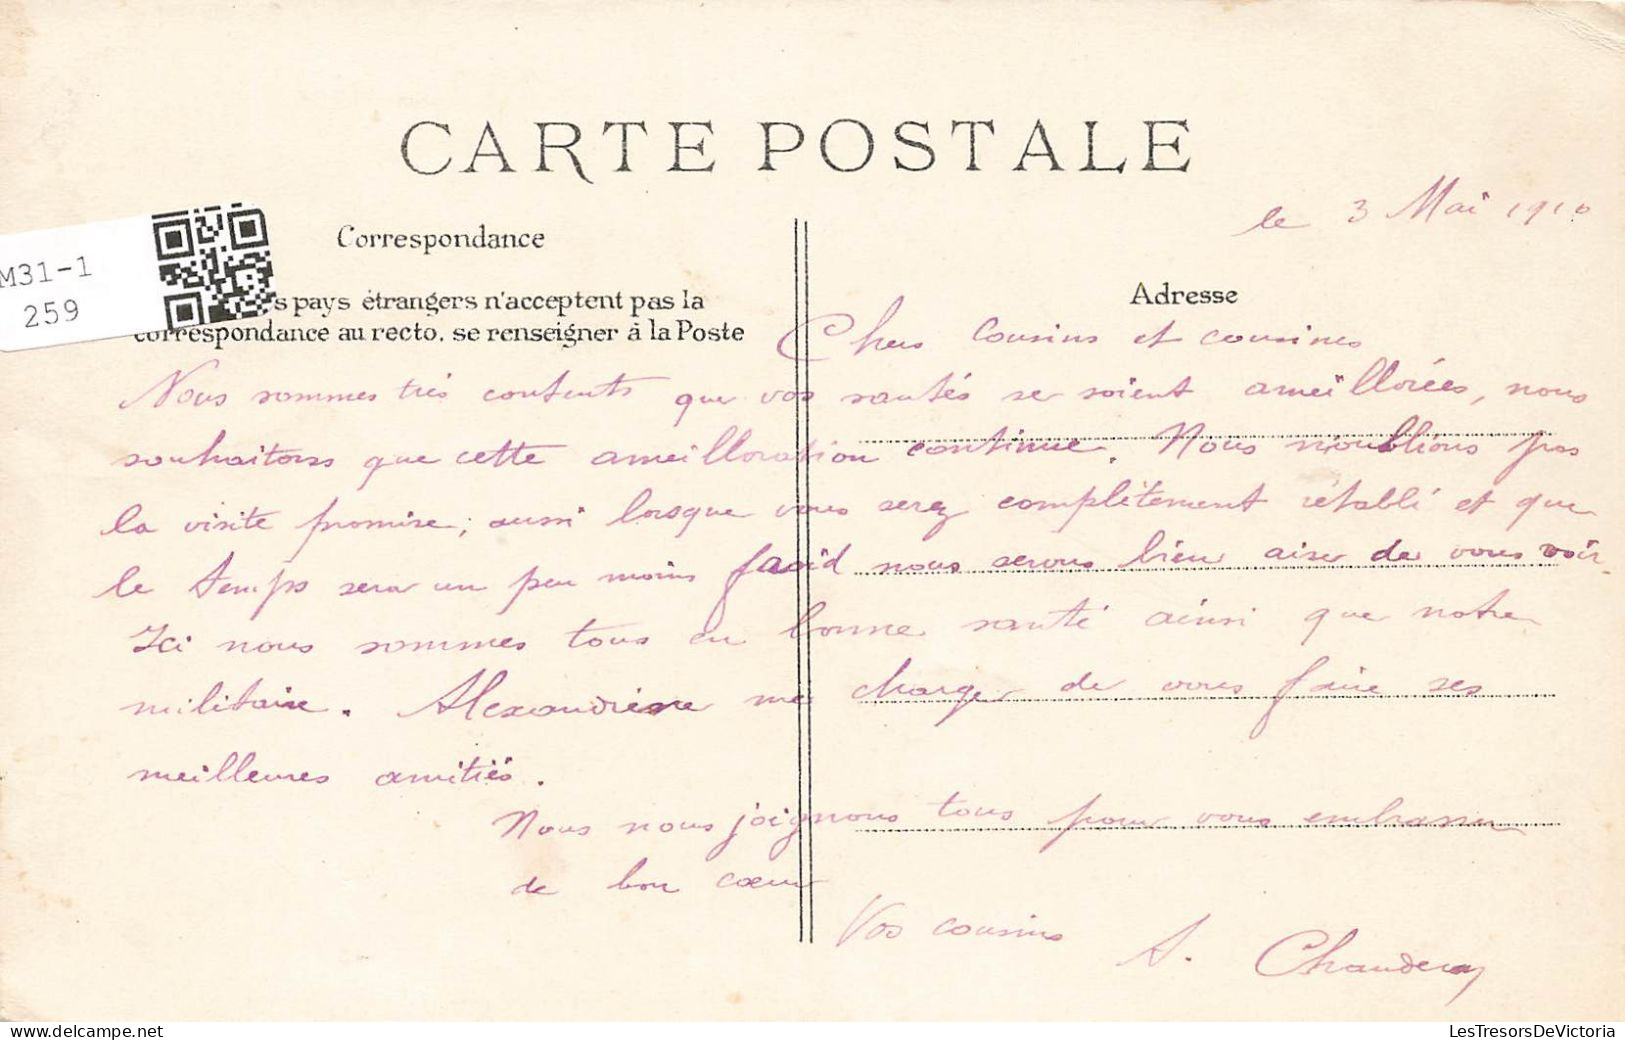 CARTE POSTALE
le 3 Mai 1910
M31-1
259
Correspondance
s pays étrangers n'acceptent pas la
correspondance au recto. se renseigner à la Poste
Adresse
Chers Cousins et cousines
Nous sommes très contents que vos santés se soient ameillorées, nous
souhaitons que cette ameilloration continue. Nous n'oublions pas
la visite promise; aussi lorsque vous serez complètement rétabli et que
le temps sera un peu moins froid nous serons bien aise de vous voir.
Ici nous sommes tous en bonne santé ainsi que notre
militaire. Alexandrine me charge de vous faire ses
meilleures amitiés.
Nous nous joignons tous pour vous embrasser
de bon cœur
Vos cousins
A.
LesTresorsDeVictoria